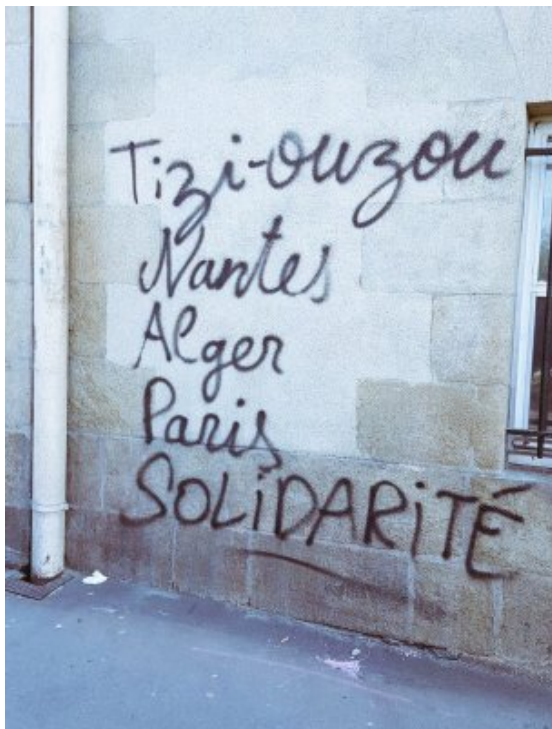 Tizi-ouzou
Nantes
Alger
Paris
SOLiDARiTÉ